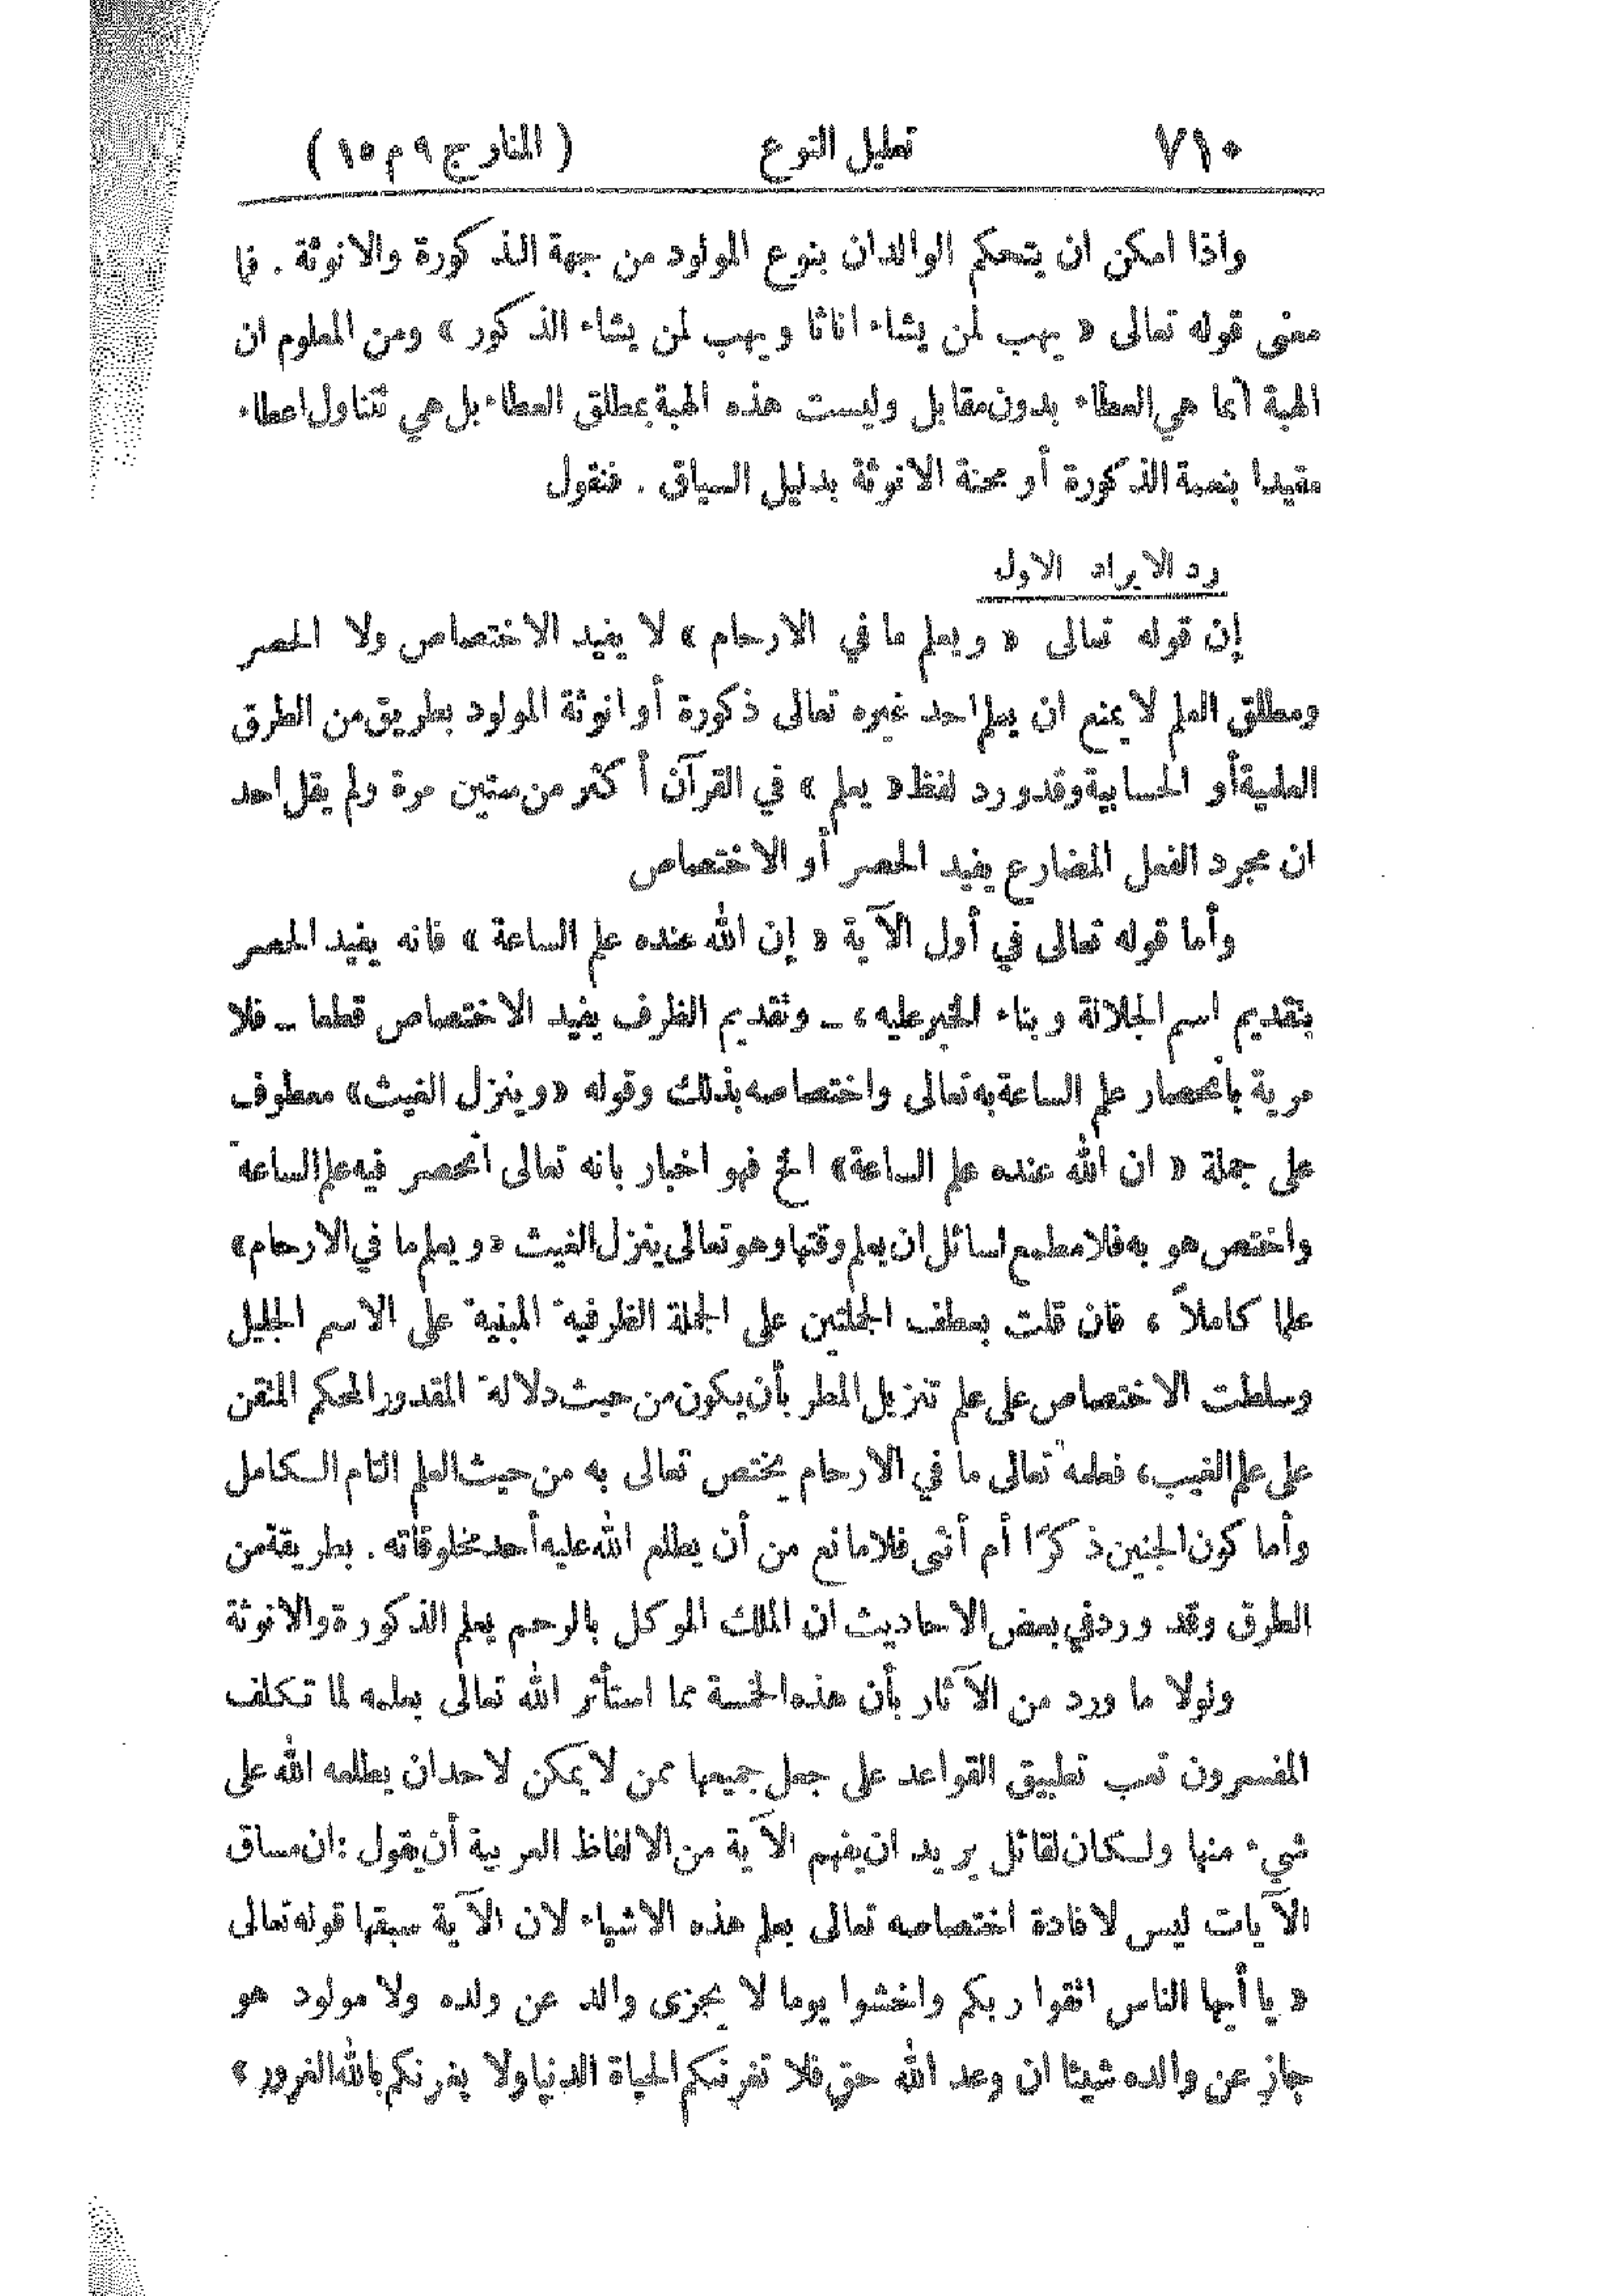 ٧١٠ تعليل النوع ( المنار ج ٩ م ١٥ )
واذا امكن ان يتحكم الوالدان بنوع المولود من جهة الذكورة والانوثة . فما
معنى قوله تعالى « يهب لمن يشاء اناثا ويهب لمن يشاء الذكور » ومن المعلوم ان
الهبة انما هي العطاء بدون مقابل وليست هذه الهبة بمطلق العطاء بل هي تتناول اعطاء
مقيدا بنعمة الذكورة أو محنة الانوثة بدليل السياق . فنقول
رد الايراد الاول
إن قوله تعالى « ويعلم ما في الارحام » لا يفيد الاختصاص ولا الحصر
ومطلق العلم لا يمنع ان يعلم احد غيره تعالى ذكورة أو انوثة المولود بطريق من الطرق
العلمية أو الحسابية وقد ورد لفظ « يعلم » في القرآن أكثر من ستين مرة ولم يقل احد
ان مجرد الفعل المضارع يفيد الحصر أو الاختصاص
وأما قوله تعالى في أول الآية « إن الله عنده علم الساعة » فانه يفيد الحصر
بتقديم اسم الجلالة وبناء الخبر عليه ، ــ وتقديم الظرف يفيد الاختصاص قطعا ــ فلا
مرية بانحصار علم الساعة به تعالى واختصاصه بذلك وقوله « وينزل الغيث » معطوف
على جملة « ان الله عنده علم الساعة » الخ فهو اخبار بانه تعالى انحصر فيه علم الساعة
واختص هو به فلا مطمع لسائل ان يعلم وقتها وهو تعالى ينزل الغيث « ويعلم ما في الارحام »
علما كاملاً ، فان قلت بعطف الجملتين على الجملة الظرفية المبنية على الاسم الجليل
وسلطت الاختصاص على علم تنزيل المطر بأن يكون من حيث دلالة المقدور المحكم المتقن
على علم الغيب ، فعلمه تعالى ما في الارحام يختص تعالى به من حيث العلم التام الكامل
وأما كون الجنين ذكرًا أم أنثى فلا مانع من أن يطلع الله عليه أحد مخلوقاته . بطريقة من
الطرق وقد ورد في بعض الاحاديث ان الملك الموكل بالرحم يعلم الذكورة والانوثة
ولولا ما ورد من الآثار بأن هذه الخمسة مما استأثر الله تعالى بعلمه لما تكلف
المفسرون تعب تطبيق القواعد على جعل جميعها ممن لا يمكن لاحد ان يطلعه الله على
شيء منها ولكان لقائل يريد ان يفهم الآية من الالفاظ العربية أن يقول : ان مساق
الآيات ليس لافادة اختصاصه تعالى بعلم هذه الاشياء لان الآية سبقها قوله تعالى
« يا أيها الناس اتقوا ربكم واخشوا يوما لا يجزى والد عن ولده ولا مولود هو
جاز عن والده شيئا ان وعد الله حق فلا تغرنكم الحياة الدنيا ولا يغرنكم بالله الغرور »